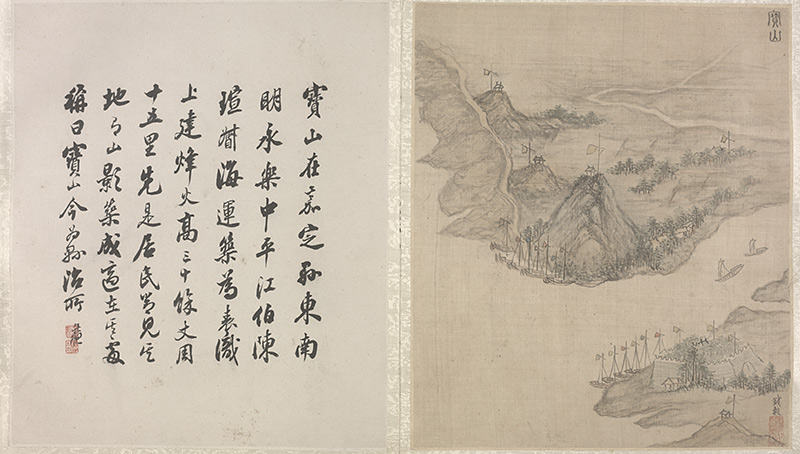 寶山在嘉定縣東南
明永樂中平江伯陳
瑄督海運築為表識
上建烽火高三十餘丈周
十五里先是居民嘗見其
地有山影築成適在其處
稱曰寶山今為縣治所
寶山